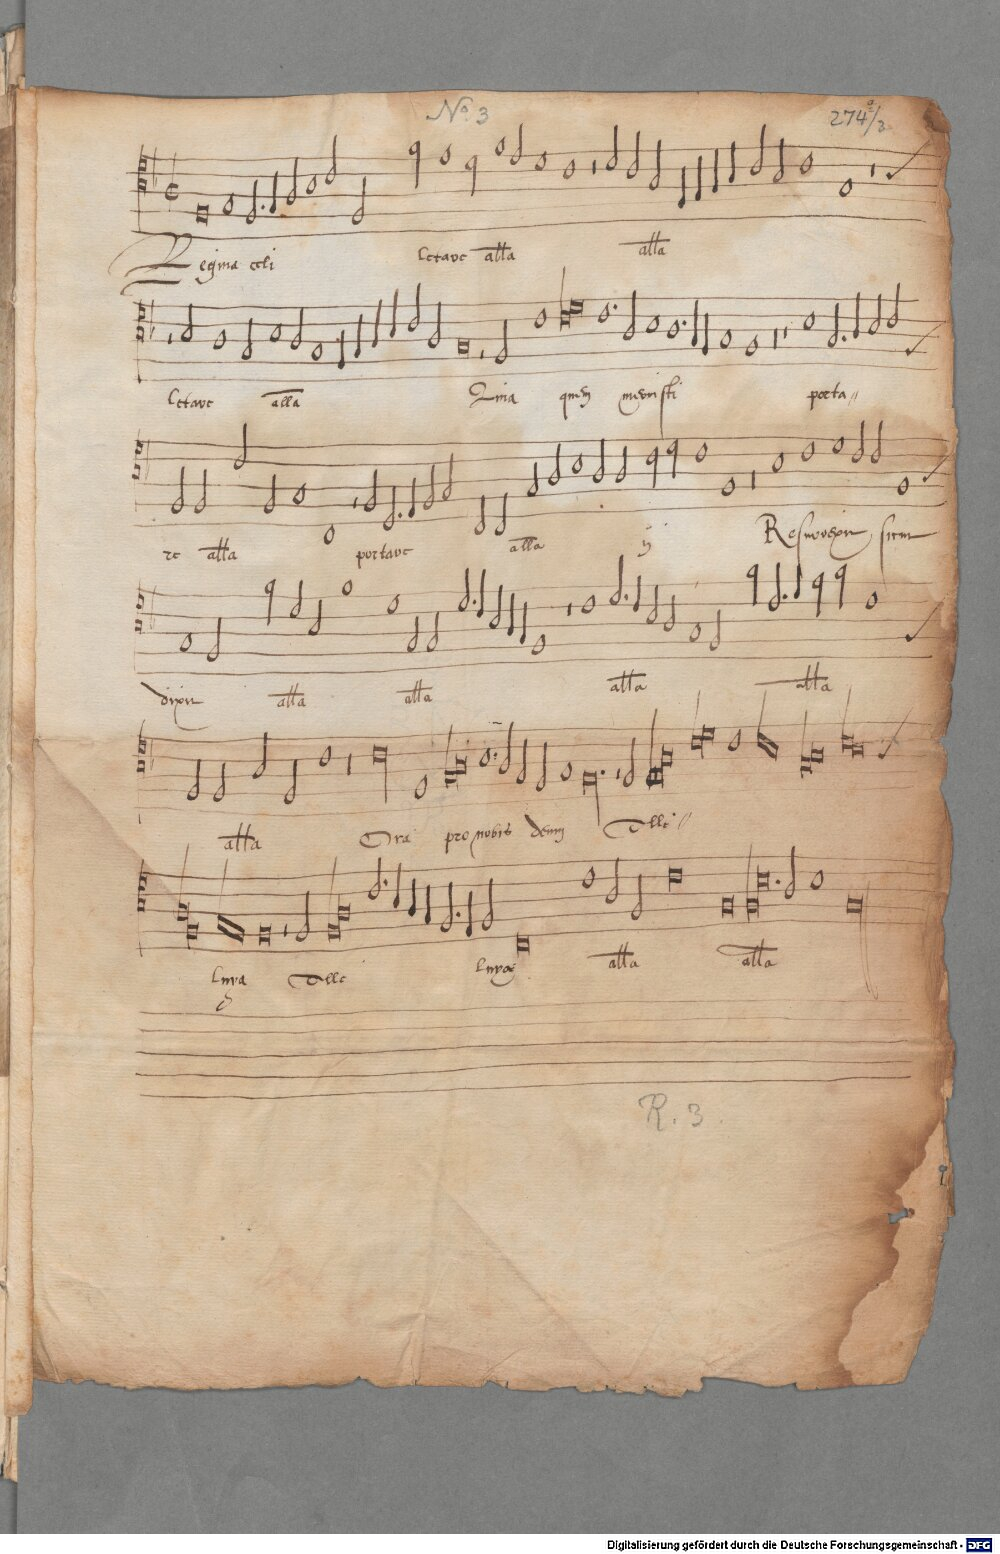 No. 3
274a/3
Regina celi letare alla alla
letare alla Quia quem meruisti porta
re alla portare alla ij Resurrexit sicut
dixit alla alla alla alla
alla Ora pro nobis deum Alle
luya Alle luya alla alla
R. 3
Digitalisierung gefördert durch die Deutsche Forschungsgemeinschaft - DFG